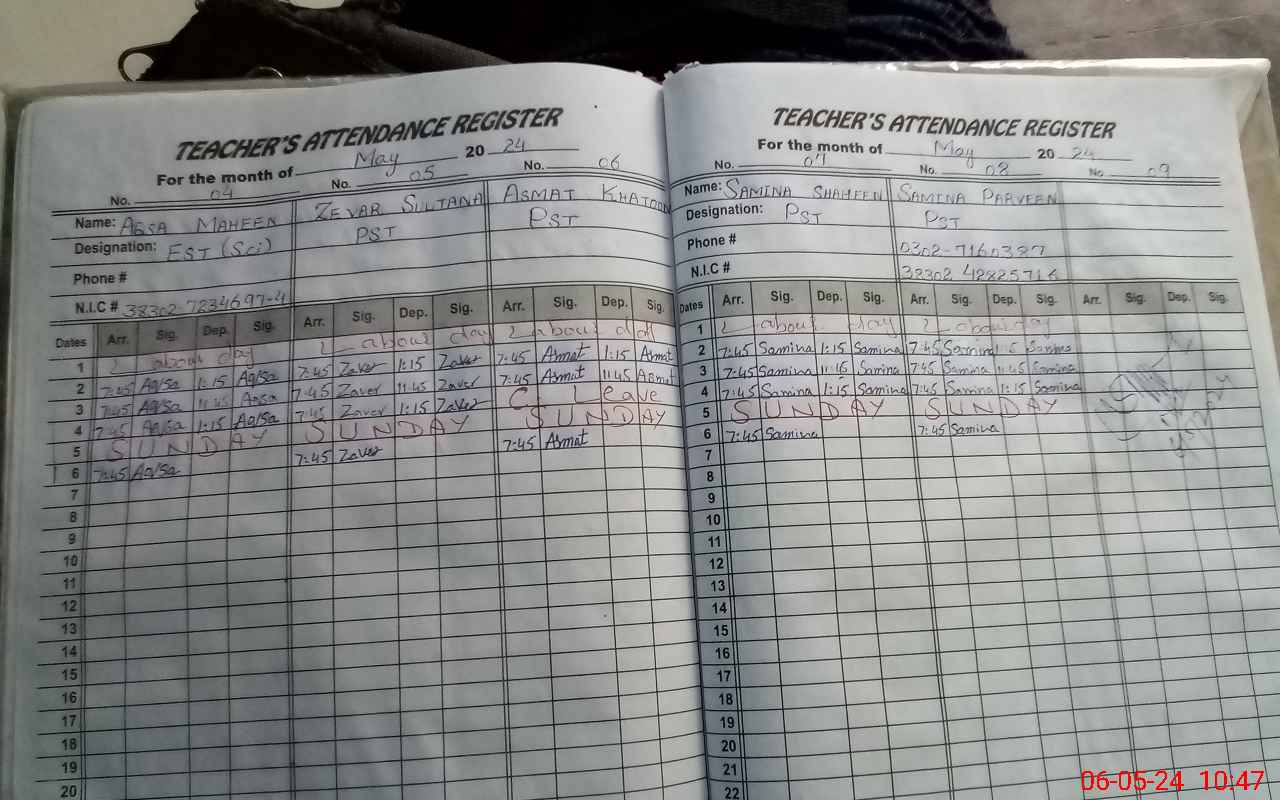 TEACHER'S ATTENDANCE REGISTER
For the month of May 20 24
No. 04 No. 05 No. 06
Name: AQSA MAHEEN ZEVAR SULTANA ASMAT KHATOON
Designation: EST (Sci) PST PST
Phone #
N.I.C # 38302-7234697-4
Dates Arr. Sig. Dep. Sig. Arr. Sig. Dep. Sig. Arr. Sig. Dep. Sig.
1 Labour day Labour day Labour
2 7:45 Aqsa 1:15 Aqsa 7:45 Zaver 1:15 Zaver 7:45 Asmat 1:15 Asmat
3 7:45 Aqsa 11:45 Aqsa 7:45 Zaver 11:45 Zaver 7:45 Asmat 11:45 Asmat
4 7:45 Aqsa 1:15 Aqsa 7:45 Zaver 1:15 Zaver C. Leave
5 SUNDAY SUNDAY SUNDAY
6 7:45 Aqsa 7:45 Zaver 7:45 Asmat
7
8
9
10
11
12
13
14
15
16
17
18
19
20
TEACHER'S ATTENDANCE REGISTER
For the month of May 20 24
No. 07 No. 08 No. 09
Name: SAMINA SHAHEEN SAMINA PARVEEN
Designation: PST PST
Phone # 0302-7160387
N.I.C # 38302 42825716
Dates Arr. Sig. Dep. Sig. Arr. Sig. Dep. Sig. Arr. Sig. Dep. Sig.
1 Labour day Labour day
2 7:45 Samina 1:15 Samina 7:45 Samina 1:15 Samina
3 7:45 Samina 11:45 Samina 7:45 Samina 11:45 Samina
4 7:45 Samina 1:15 Samina 7:45 Samina 1:15 Samina
5 SUNDAY SUNDAY
6 7:45 Samina 7:45 Samina
7
8
9
10
11
12
13
14
15
16
17
18
19
20
21
22
06-05-24 10:47